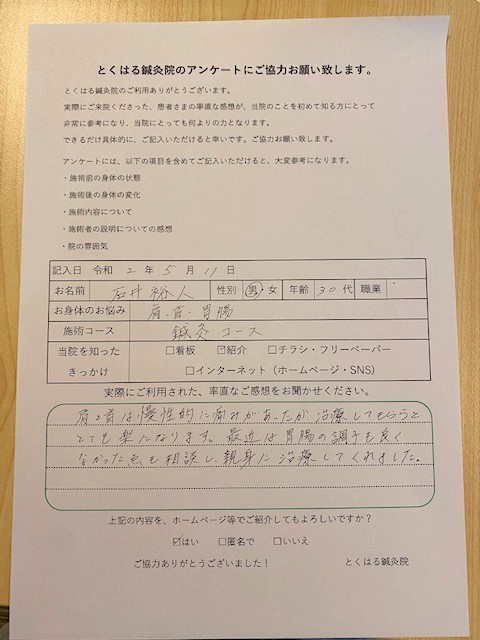 とくはる鍼灸院のアンケートにご協力お願い致します。
とくはる鍼灸院のご利用ありがとうございます。
実際にご来院くださった、患者さまの率直な感想が、当院のことを初めて知る方にとって
非常に参考になり、当院にとっても何よりの力となります。
できるだけ具体的に、ご記入いただけると幸いです。ご協力お願い致します。
アンケートには、以下の項目を含めてご記入いただけると、大変参考になります。
・施術前の身体の状態
・施術後の身体の変化
・施術内容について
・施術者の説明についての感想
・院の雰囲気
記入日 令和 2 年 5 月 11 日
お名前 石井裕人 性別 男・女 年齢 30代 職業
お身体のお悩み 肩・首・胃腸
施術コース 鍼灸コース
当院を知った □看板 ☑紹介 □チラシ・フリーペーパー
きっかけ □インターネット（ホームページ・SNS）
実際にご利用された、率直なご感想をお聞かせください。
肩と首は慢性的に痛みがあったが治療してもらうと
とても楽になります。最近は胃腸の調子も良く
なかった点も相談し、親身に治療してくれました。
上記の内容を、ホームページ等でご紹介してもよろしいですか？
☑はい □匿名で □いいえ
ご協力ありがとうございました！ とくはる鍼灸院